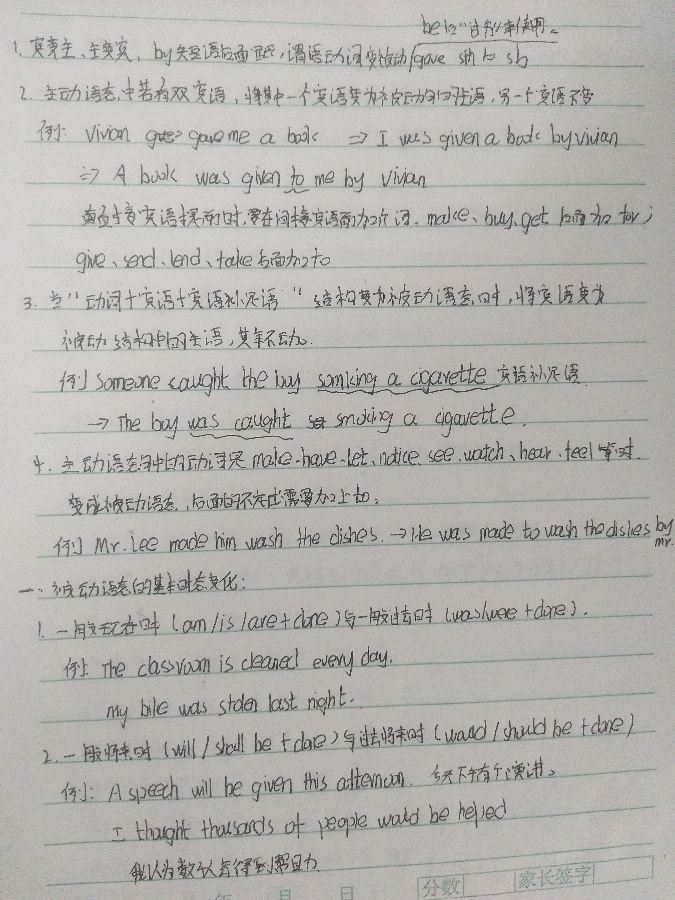 be+过去分词构成。
1. 宾变主、主变宾, by 短语后面跟, 谓语动词变被动/gave sth to sb
2. 主动语态中若有双宾语, 将其中一个宾语变为被动句的主语, 另一个宾语不变
例: Vivian gave me a book ⇒ I was given a book by vivian
⇒ A book was given to me by Vivian
当直接宾语提前时, 要在间接宾语前加介词. make、buy、get 后面加 for;
give、send、lend、take 后面加 to
3. 当"动词+宾语+宾语补足语"结构变为被动语态时, 将宾语变为
被动结构中的主语, 其余不动.
例 Someone caught the boy somking a cigarette 宾语补足语
→ The boy was caught smoking a cigarette.
4. 主动语态句中的动词是 make. have. let、notice. see. watch、hear. feel 等时
变成被动语态, 后面的不定式需要加上 to。
例 Mr. Lee made him wash the dishes. → He was made to wash the dishes by mr.
一、被动语态的基本时态变化:
1. 一般现在时 (am/is/are+done) 与一般过去时 (was/were+done).
例: The classroom is cleaned every day.
My bike was stolen last night.
2. 一般将来时 (will/shall be+done) 与过去将来时 (would/should be+done)
例: A speech will be given this afternoon. 今天下午有个演讲。
I thought thousands of people would be helped
我认为数以 得到帮助
年 月 日 分数 家长签字